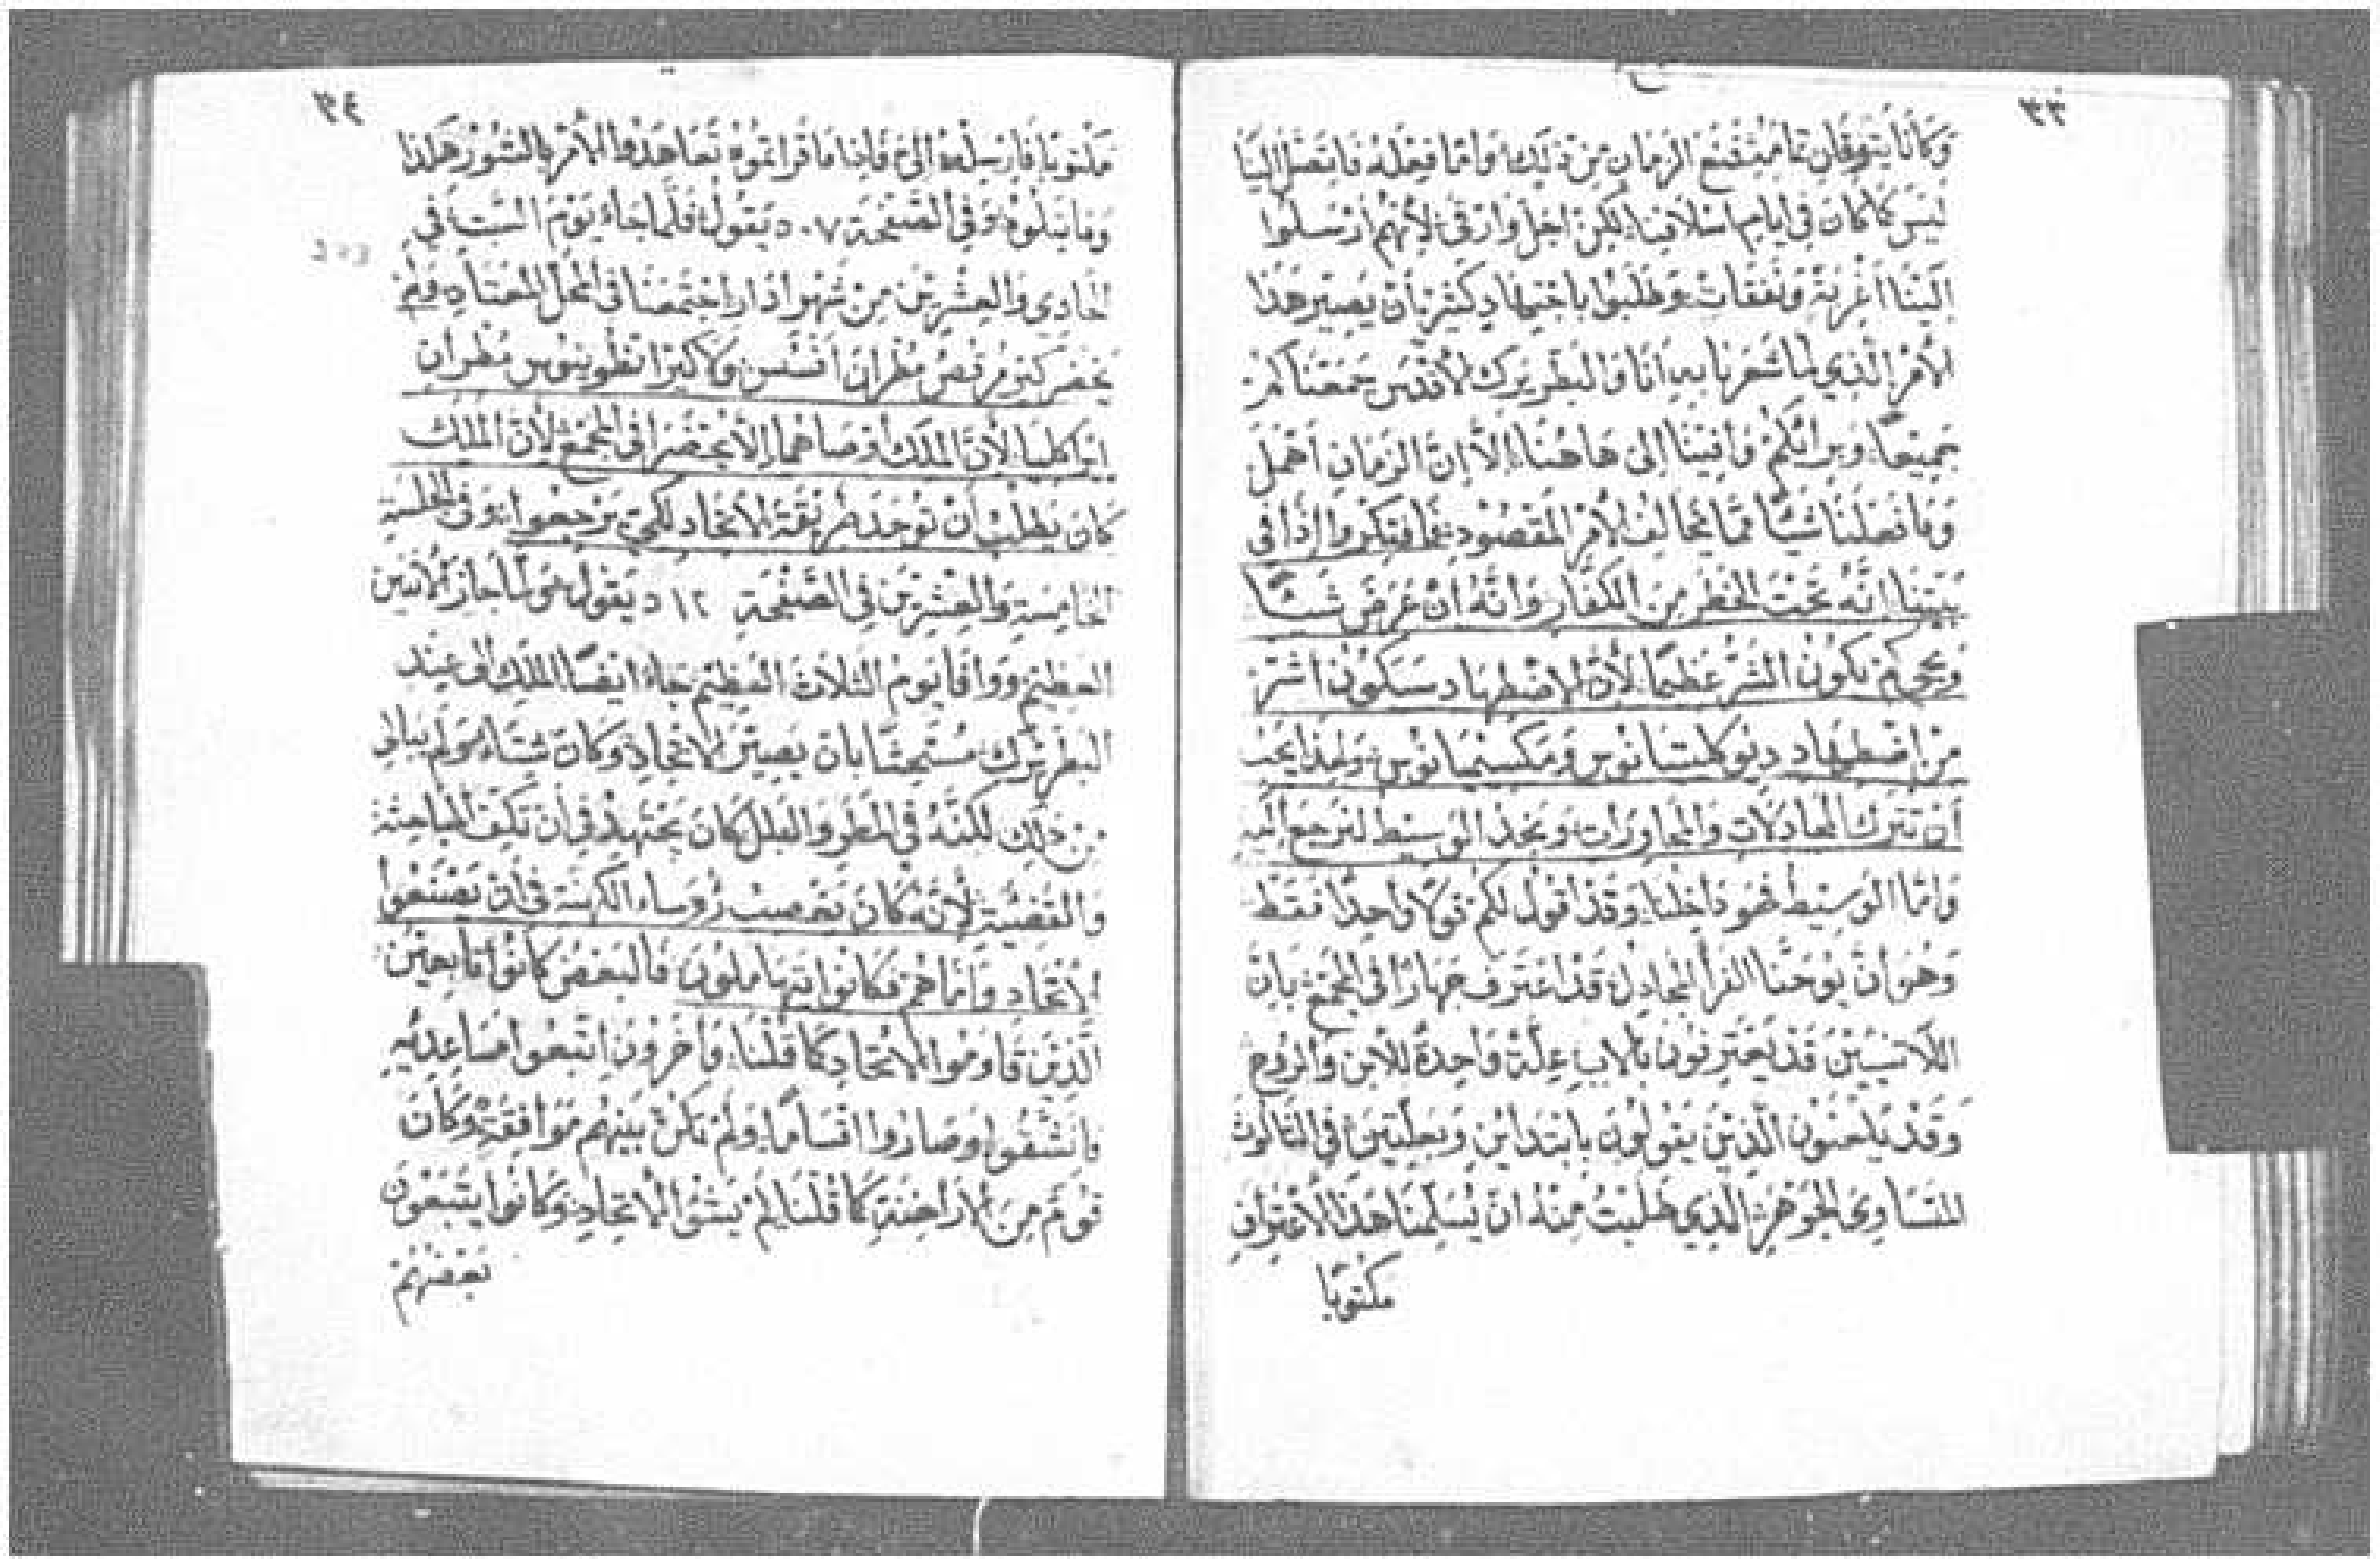 ٣٣
وَكَانَا يَتَوقفَانِ تمامًا الزمَانِ مِنْ ذَلِكَ وَامَّا فِعْلَهُ فَاتصَل اليْنَا
لَيسَ كَمَا كَانَ فِي ايامِ اسْلَافِنَا لكِنْ اجَل وَارْقَى لِأَنَّهُمْ أَرْسَلُوا
اِلَيْنَا اَغْرِبَةً وَنَفَقَاتٍ وَطَلَبُوا بِاجْتِهَادٍ كَثِيْر بأَنْ يَصِيْر هَذَا
الأمْر الَّذِي لما شَعَرْنَا بِهِ اَنَا وَالبَطْرِيَرْك الأقْدَس جَمَعْنَاكمْ
جَمِيْعًا وَبِرَائكُمْ وَاتَيْنَا اِلَى هَاهُنَا اِلَّا انَّ الزَمَانِ اهْمَلَ
وَمَا فعَلْنَا شَيًّا ممَّا يُخَالِف الأمْر المَقْصُودِ فَافتكِرُوا اِذَا فِي
بَيْتِنَا اِنَّهُ تَحْتَ الخَطَر مِنَ الكُفَّارِ وَانَّهُ اِن عَرَضَ شَيًّا
يَكُونُ الشَرّ عَظِيمًا لأَنَّ الاضْطِهَاد سَيَكُونُ اشَرّ
مِنْ اِضْطِهَاد دِيُوكلِيتِيَانُوسَ وَمَكْسِيمِيَانُوسَ وَلِهَذَا يَجبُ
أنْ تَتْرك المُجَادَلَاتِ وَالمُحَاوَرَات وَنجدَ الوَسِيْط لنرْجع اليْهِ
وَامَّا الوَسِيْطُ فَهُوَ دَاخِلنَا وَقَدْ اقُولُ لكُمْ قَولًا وَاحِدًا فَقَطْ
وَهُوَ اَنَّ يُوحَنَّا الفرَا المُجَادِلُ قَدْ اعْتَرَفَ جهَارًا فِي المَجْمَع بَانَّ
اللَّاتِينِيِّيْنَ قَدْ يَعْتَرِفُونَ بالابِ عِلَّة وَاحِدَة للابْن وَالرُّوح
وَقَدْ يَلعَنُونَ الَّذِيْنَ يَقُولُونَ بابْتِدَايْنِ وَبعِلّتَيْنِ فِي الثالُوث
المتَسَاوِي الجَوْهَرِ الَّذِي طَلَبْتُ مِنْهُ ان يُسَلّمنَا هَذَا الاعْتِرَاف
مكتوبًا
٣٤
مَكْتوبًا فَارْسلهُ اِليّ فَاِذَا مَا قَرَاتمُوهُ تَعَاهَدُوا الأمْر بالشورْ هَكذَا
وَمَا يَتلُوهُ وَفِي الصَّفْحَةِ ٧٠ د يَقُولُ فَلمَّا جَاءَ يَوْمَ السَّبْت فِي
الحَادِي وَالعِشْرِيْنَ مِنْ شَهْرِ اذَار اجْتَمَعْنَا فِي المحَلّ المعْتَادِ وَلَمْ
يحْضر كِيْر مُرْقصُ مُطْرَانَ افسُسَ وَلَا كِيْر انطُونيوس مُطْرَان
ايرَاكليَا لأنَّ المَلَك اوْصَاهُمَا الَّا يحْضرَا فِي المَجْمَع لِأَنَّ المَلِك
كَانَ يَطْلُب أنْ تُوجَدَ طرِيْقة الاتحَاد لكَيْ يَرْجِعُوا وَفِي الجلسَةِ
الخَامِسَةِ وَالعِشْرِيْن فِي الصَّفْحَةِ ١٢ د يَقُول هُوَ لمَا جَازَ الاثنين
العَظِيْم وَوَافَا يَوْمَ الثلَاث العَظِيْم جَاء ايْضًا المَلِك الى عِنْد
البَطْرِيَرْك مُسْتحِثًا بان يَصِيْرَ الاتحَادِ وَكَانَ شتَاء وَلَم يبَالي
مِن ذلِكَ لكِنَّهُ فِي المَطَر وَالبَلل كَانَ يَجْتهِدْ فِي انْ تَكف المبَاحثة
وَالقضِيَّة لأنَّهُ كَانَ يَغْصِبْ رُوسَاء الكَهَنَة فِي أنْ يَصْنَعُوا
الاتحَاد وَامَّا هُمْ فكَانُوا يَتهَامَلُونَ فَالبَعْضُ كَانُوا تابِعِيْن
الَّذِيْن قَاوَمُوا الاتحَادِ كمَا قُلْنَا وَاخَرُونَ اتبَعُوا مُسَاعِدِيْهِ
فَانْشَقُوا وَصَارُوا اقسَامًا وَلَمْ تَكُنْ بَيْنَهُم مُوَافقَة وَكَانَ
قوْمٌ مِنَ الارَاخِنَةِ كمَا قُلْنَا لَمْ يَشَوُا الاتحَادِ وَكَانُوا يَتْبَعُونَ
بَعْضهُمْ